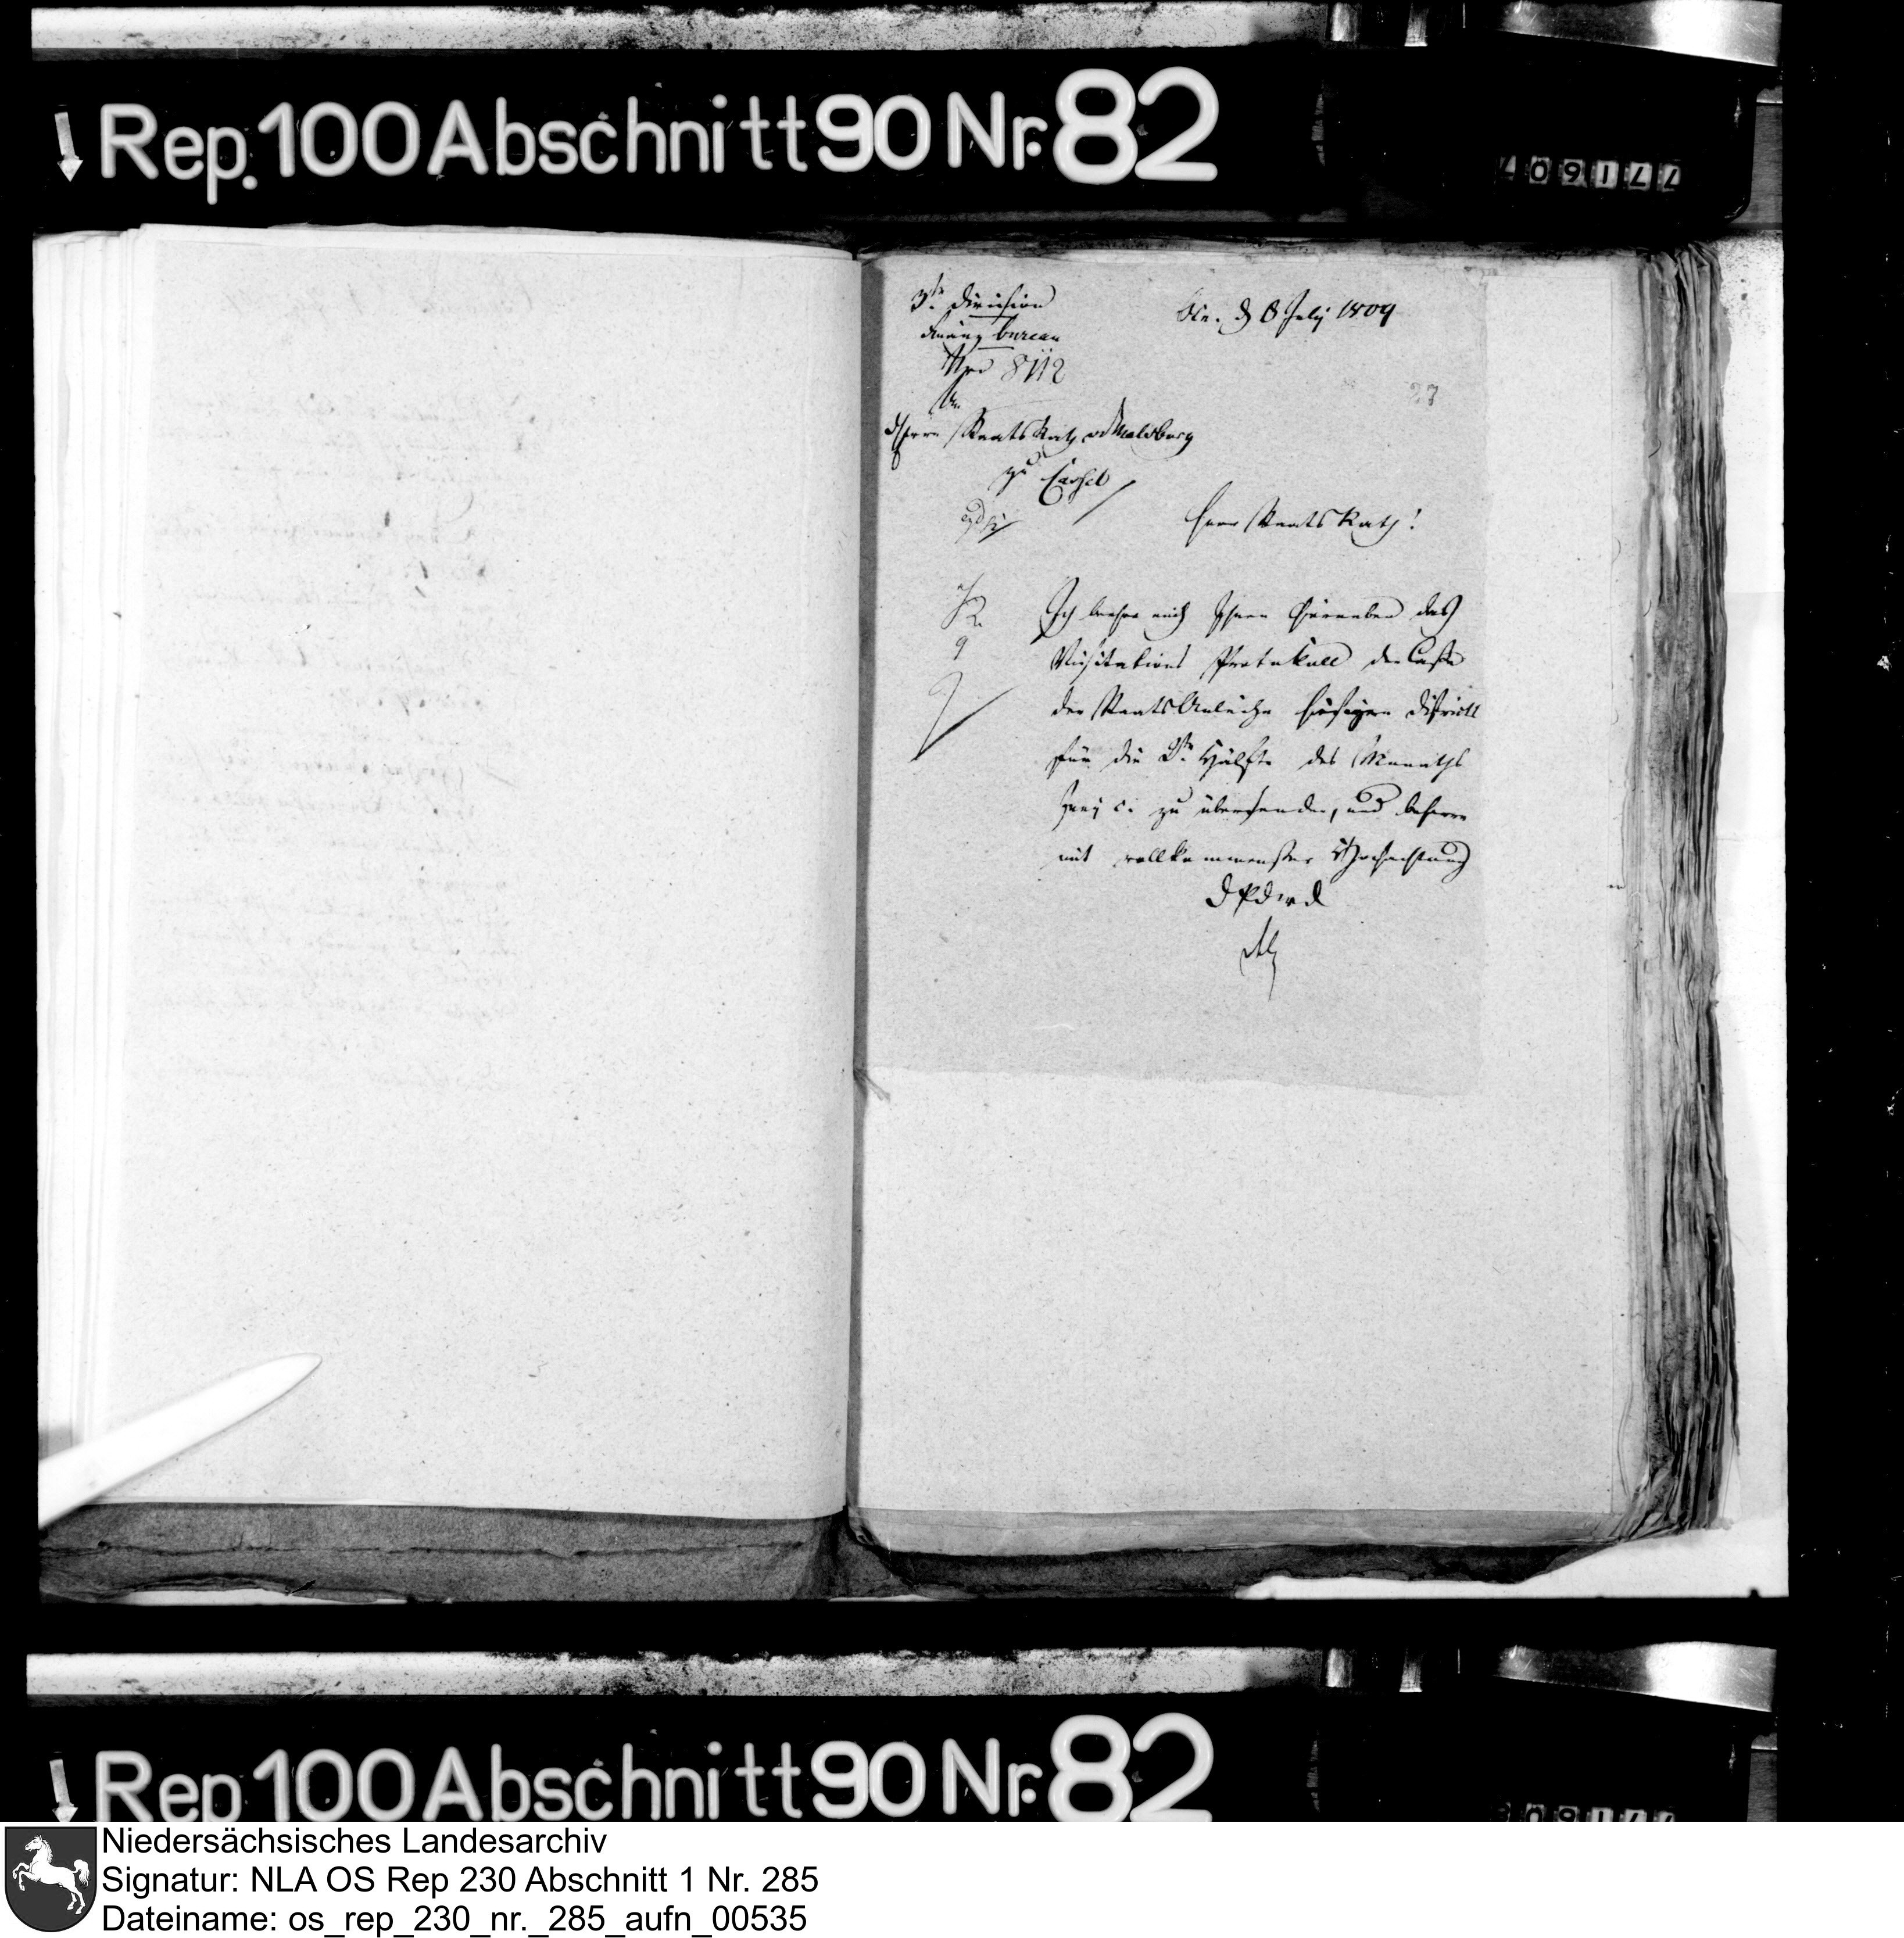 Rep. 100 Abschnitt 90 Nr. 82
3te Division
Finanz bureau
Nro 8112
An
d Herrn StaatsRath v Malsburg
zu Cassel
Osn. d 8 July 1809
27
Herr StaatsRath!
Ich beehre mich Ihnen hierneben das
Visitations Protokoll der Casse
der StaatsAnleihe hiesigen Distrikts
für die 2te Hälfte des Monaths
Juny c. zu übersenden, und beharre
mit vollkommenster Hochachtung
D P d W D
Rep 100 Abschnitt 90 Nr. 82
Niedersächsisches Landesarchiv
Signatur: NLA OS Rep 230 Abschnitt 1 Nr. 285
Dateiname: os_rep_230_nr._285_aufn_00535